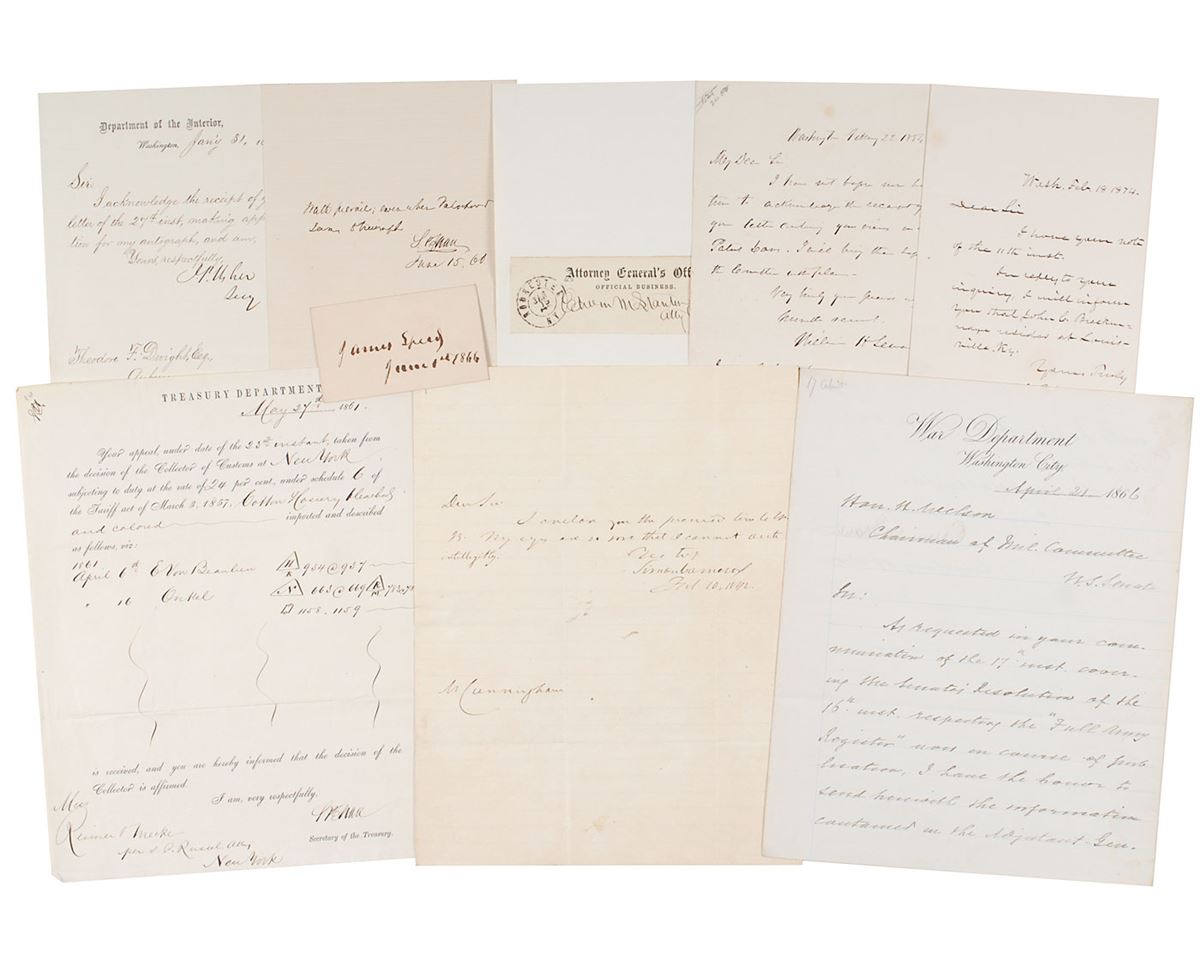 Department of the Interior,
Washington, Jan'y 31,
Sir
I acknowledge the receipt of
letter of the 27th inst, making app
tion for my autograph, and am,
Yours, respectfully,
J.P. Usher
Secy
Theodore F. Dwight, Esq,
even when
SPChase
June 15. 66
James Speed
1866
ROCHESTER
N.Y.
Attorney General's Off
OFFICIAL BUSINESS.
Edwin M. Stanton
Washington
22
My Dear Sir
I have not before now
to acknowledge the
your letter
Very truly your
servant
William H Sewa
Wash. Feb 18 1874.
Dear Sir
I have your note
of the 11th inst.
In reply to your
inquiry, I will inform
you that John C. Breckin-
ridge resides at Louis-
ville, Ky.
Yours Truly
TREASURY DEPARTMENT
May 27th 1861.
Your appeal, under date of the 25th instant, taken from
the decision of the Collector of Customs at New York
subjecting to duty at the rate of 24 per cent. under schedule C of
the Tariff act of March 3, 1857, Cotton Hosiery bleached
and colored imported and described
as follows, viz:
1861
April 6th E Von Beaulieu 934@937
" 16 Onkel
1158. 1159
is received, and you are hereby informed that the decision of the
Collector is affirmed.
I am, very respectfully,
SPChase
Secretary of the Treasury.
Reimer & Mecke
New York
Dear Sir
you the promised
My eyes are so sore that I cannot write
intelligibly.
Simon Cameron
Mr Cunningham
War Department
Washington City,
April 21 1866
Hon. H. Wilson
Chairman of Mil. Committee
U.S. Senate
Sir:
As requested in your com-
munication of the 17th inst. cover-
ing the Senate's Resolution of the
16th inst. respecting the "Full Army
Register" now in course of pub
lication, I have the honor to
send herewith the information
contained in the Adjutant Gen-